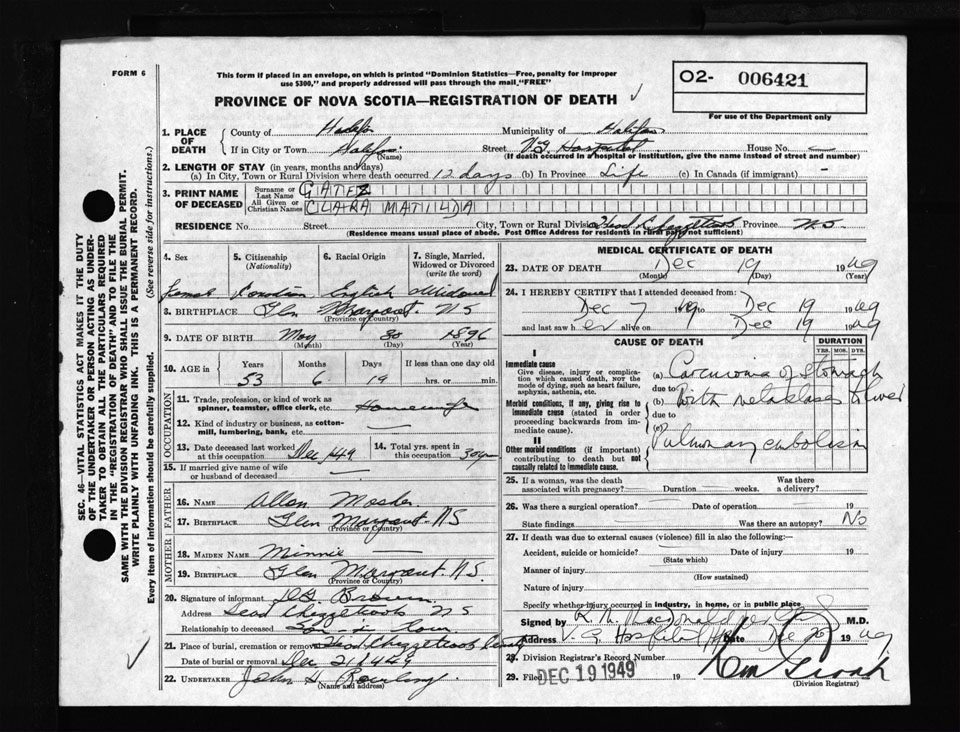 FORM 6
This form if placed in an envelope, on which is printed "Dominion Statistics—Free, penalty for improper
use $300," and properly addressed will pass through the mail "FREE"
PROVINCE OF NOVA SCOTIA—REGISTRATION OF DEATH
O2- 006421
For use of the Department only
SEC. 46— VITAL STATISTICS ACT MAKES IT THE DUTY
OF THE UNDERTAKER OR PERSON ACTING AS UNDER-
TAKER TO OBTAIN ALL THE PARTICULARS REQUIRED
IN THE "REGISTRATION OF DEATH" AND TO FILE THE
SAME WITH THE DIVISION REGISTRAR WHO SHALL ISSUE THE BURIAL PERMIT.
WRITE PLAINLY WITH UNFADING INK. THIS IS A PERMANENT RECORD.
Every item of information should be carefully supplied. (See reverse side for instructions.)
1. PLACE OF DEATH County of Halifax Municipality of Halifax
If in City or Town Halifax (Name) Street VG Hospital House No.
(If death occurred in a hospital or institution, give the name instead of street and number)
2. LENGTH OF STAY (in years, months and days)
(a) In City, Town or Rural Division where death occurred 12 days (b) In Province Life (c) In Canada (if immigrant) —
3. PRINT NAME OF DECEASED Surname or Last Name GATEZ
All Given or Christian Names CLARA MATILDA
RESIDENCE No. Street City, Town or Rural Division Head Chezzetcook Province N.S.
(Residence means usual place of abode. Post Office Address for residents in rural parts not sufficient)
4. Sex 5. Citizenship (Nationality) 6. Racial Origin 7. Single, Married, Widowed or Divorced (write the word)
Female Canadian English Widowed
8. BIRTHPLACE Glen Margaret NS
(Province or Country)
9. DATE OF BIRTH May 30 1896
(Month) (Day) (Year)
10. AGE in Years Months Days If less than one day old
53 6 19 hrs. or min.
OCCUPATION
11. Trade, profession, or kind of work as spinner, teamster, office clerk, etc. Housewife
12. Kind of industry or business, as cotton-mill, lumbering, bank, etc. —
13. Date deceased last worked at this occupation Dec 1949 14. Total yrs. spent in this occupation 30 yrs
15. If married give name of wife or husband of deceased
FATHER
16. NAME Allan Mosher
17. BIRTHPLACE Glen Margaret NS
(Province or Country)
MOTHER
18. MAIDEN NAME Minnie —
19. BIRTHPLACE Glen Margaret. N.S.
(Province or Country)
20. Signature of informant Brown
Address Head Chezzetcook NS
Relationship to deceased Son in law
21. Place of burial, cremation or removal Head Chezzetcook
Date of burial or removal Dec 21 1949
22. UNDERTAKER John
(Name and address)
MEDICAL CERTIFICATE OF DEATH
23. DATE OF DEATH Dec 19 1949
(Month) (Day) (Year)
24. I HEREBY CERTIFY that I attended deceased from:
Dec 7 1949 to Dec 19 1949
and last saw her alive on Dec 19 1949
CAUSE OF DEATH
DURATION
YRS. MOS. DYS.
I
Immediate cause
Give disease, injury or complication which caused death, NOT the mode of dying, such as heart failure, asphyxia, asthenia, etc.
(a) Carcinoma of Stomach
due to
Morbid conditions, if any, giving rise to immediate cause (stated in order proceeding backwards from immediate cause).
(b) With metastases to liver
due to
II
Other morbid conditions (if important) contributing to death but not causally related to immediate cause.
Pulmonary embolism
25. If a woman, was the death associated with pregnancy? Duration weeks. Was there a delivery?
26. Was there a surgical operation? Date of operation 19
State findings Was there an autopsy? No
27. If death was due to external causes (violence) fill in also the following:—
Accident, suicide or homicide? Date of injury 19
(State which)
Manner of injury
(How sustained)
Nature of injury
Specify whether injury occurred in industry, in home, or in public place
Signed by M.D.
Address V. G. Hospital Date Dec 20 1949
28. Division Registrar's Record Number
29. Filed DEC 19 1949 19
(Division Registrar)